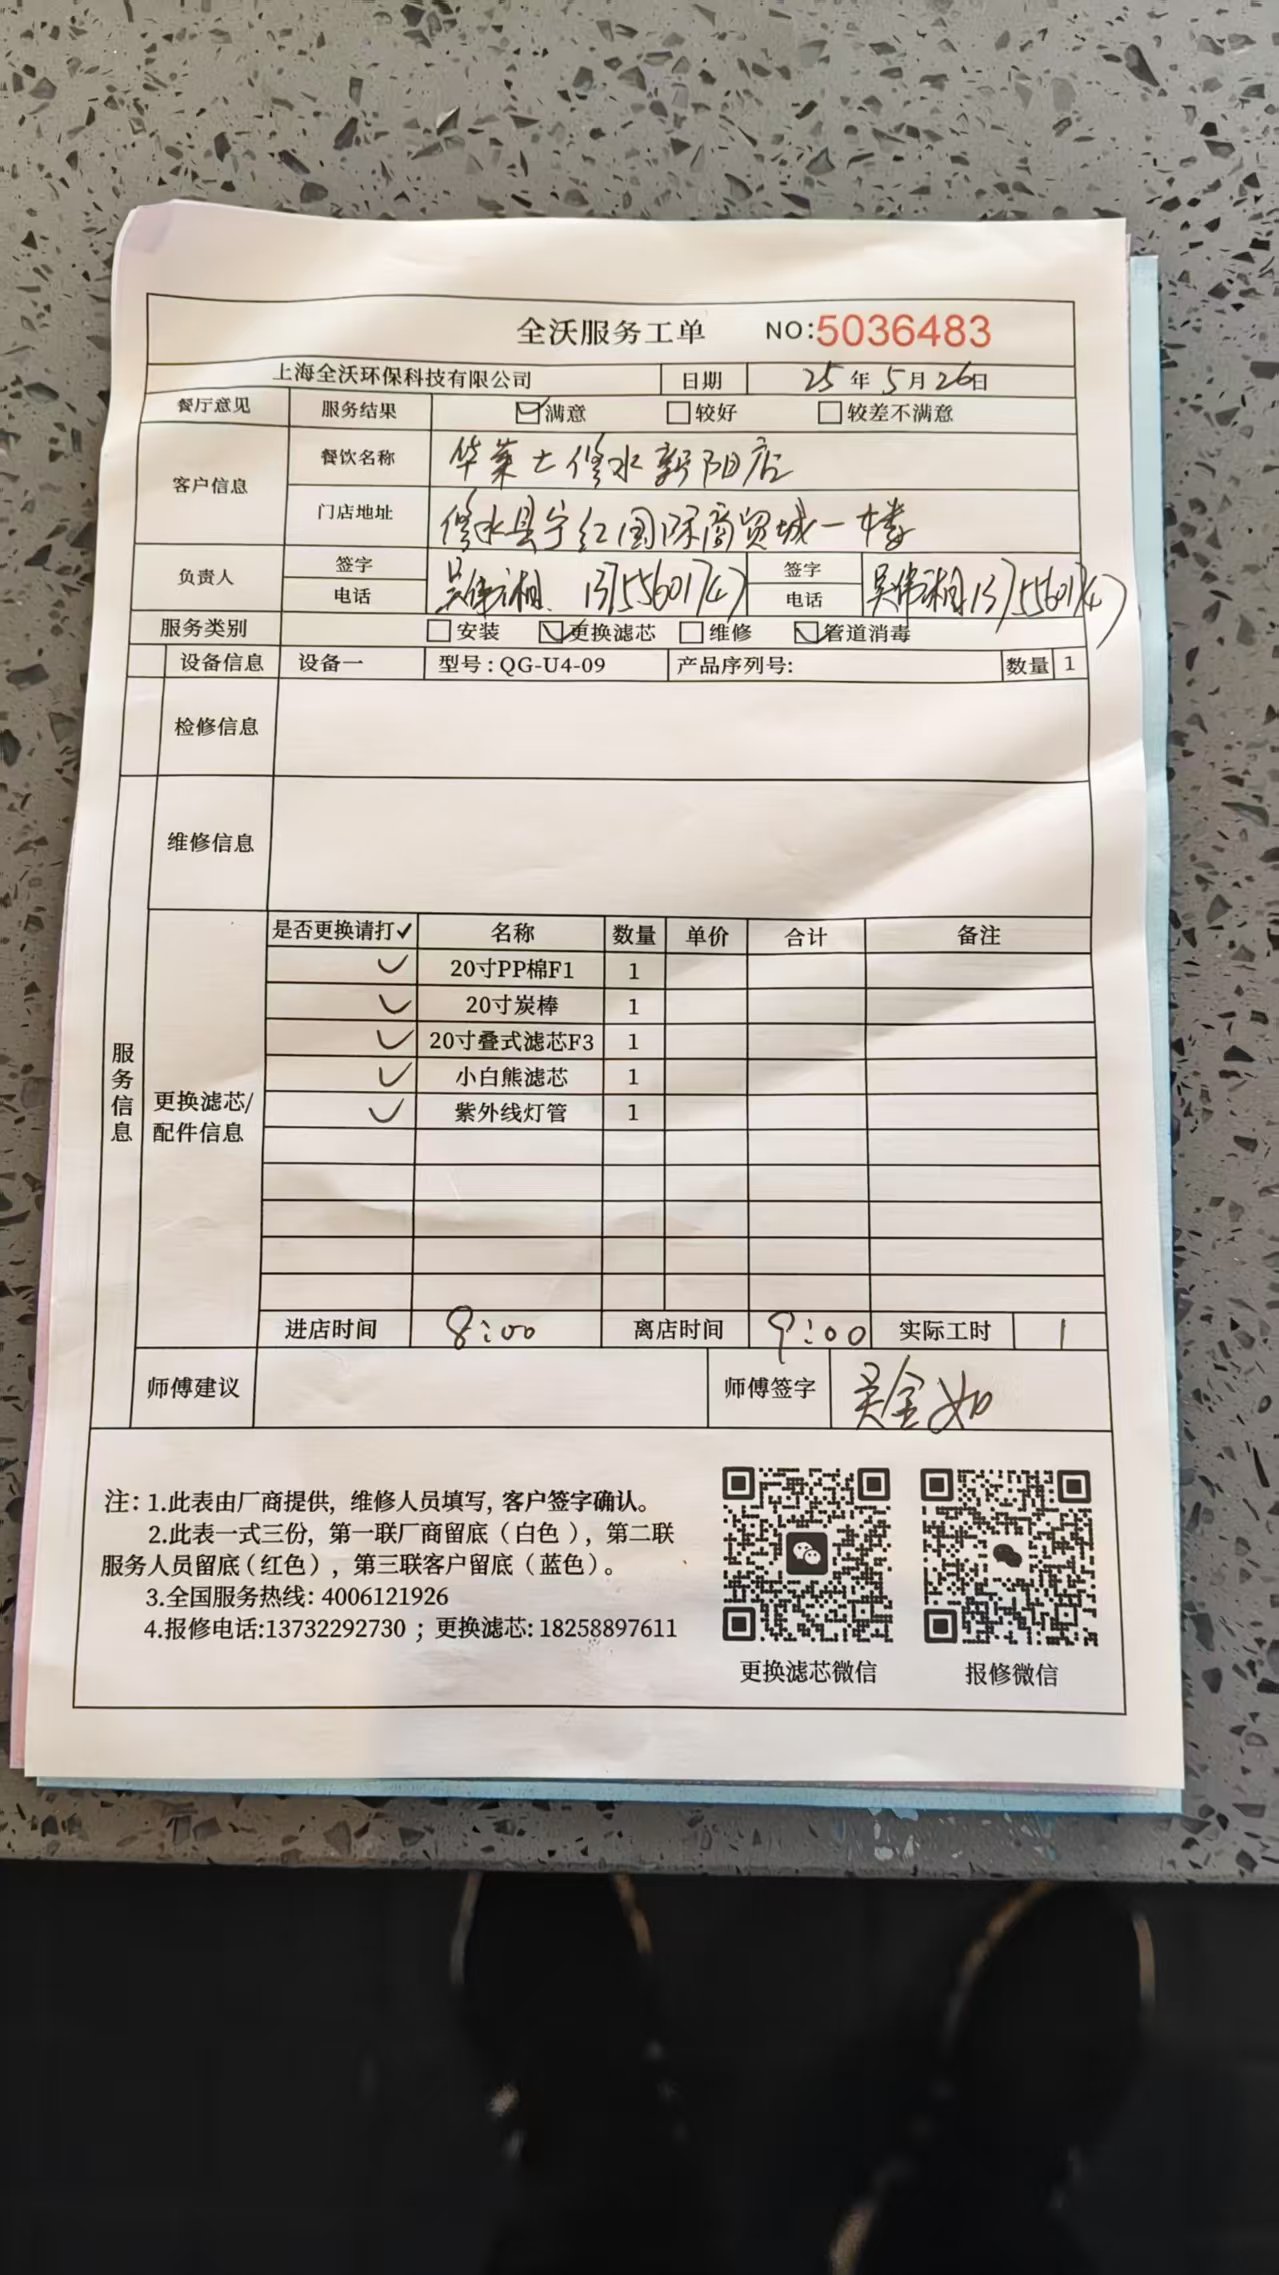 全沃服务工单 NO:5036483
上海全沃环保科技有限公司 日期 25年5月26日
餐厅意见 服务结果 ☑满意 ☐较好 ☐较差不满意
客户信息 餐饮名称 华莱士修水新阳店
门店地址 修水县宁红国际商贸城一楼
负责人 签字 吴伟湘 签字 吴伟湘
电话 电话
服务类别 ☐安装 ☑更换滤芯 ☐维修 ☑管道消毒
设备信息 设备一 型号:QG-U4-09 产品序列号: 数量 1
检修信息
维修信息
服务信息
更换滤芯/配件信息
是否更换请打✓ 名称 数量 单价 合计 备注
✓ 20寸PP棉F1 1
✓ 20寸炭棒 1
✓ 20寸叠式滤芯F3 1
✓ 小白熊滤芯 1
✓ 紫外线灯管 1
进店时间 8:00 离店时间 9:00 实际工时 1
师傅建议 师傅签字 吴金如
注:1.此表由厂商提供,维修人员填写,客户签字确认。
2.此表一式三份,第一联厂商留底(白色),第二联
服务人员留底(红色),第三联客户留底(蓝色)。
3.全国服务热线:4006121926
4.报修电话:13732292730;更换滤芯:18258897611
更换滤芯微信 报修微信